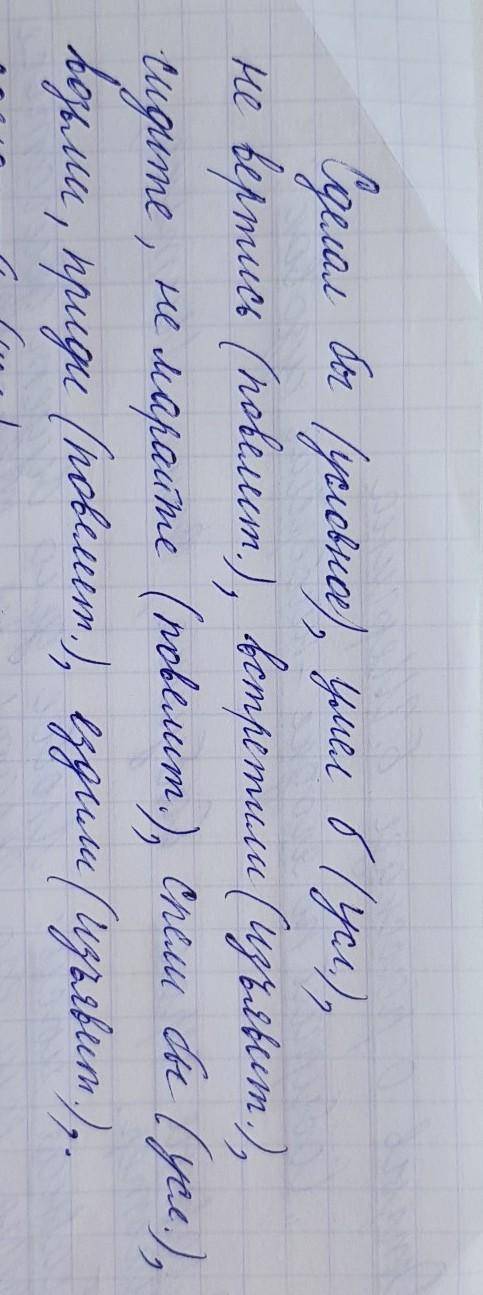 Сделал бы (условное), умел б (усл.),
не вертись (повелит.), встретили (изъявит.),
сидите, не марайте (повелит.), спели бы (усл.),
возьми, приди (повелит.), ездили (изъявит.),.